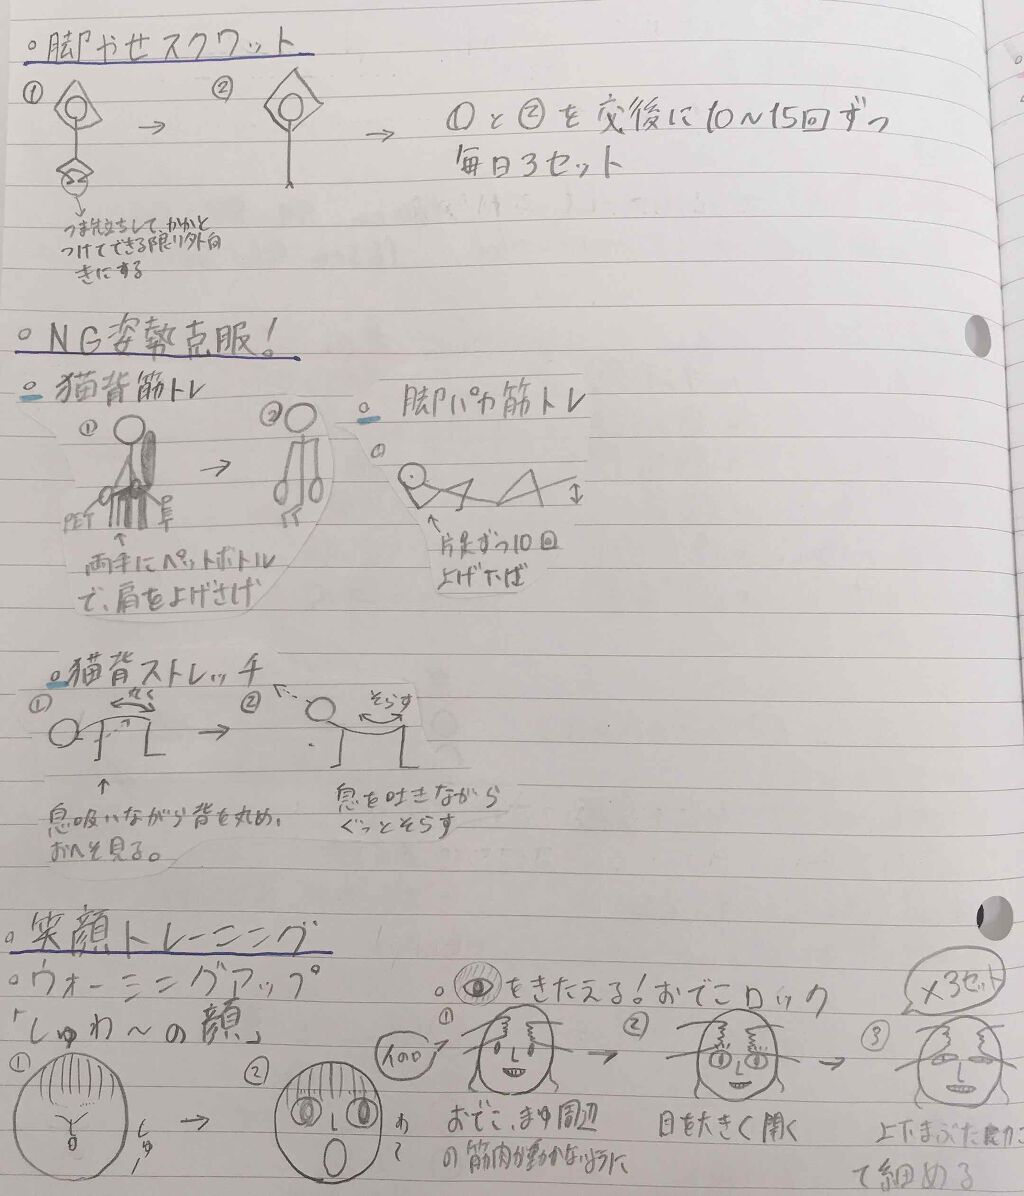 ○脚やせスクワット
① → ② → ①と②を交後に10〜15回ずつ
毎日3セット
つま先立ちして、かかと
つけてできる限り外向
きにする
○NG姿勢克服!
○猫背筋トレ
① → ②
PET
両手にペットボトル
で、肩を上げさげ
○脚パカ筋トレ
①
片足ずつ10回
上げ
○猫背ストレッチ
① 丸く → ② そらす
息吸いながら背を丸め、
おへそ見る。
息を吐きながら
ぐっとそらす
○笑顔トレーニング
○ウォーミングアップ
「しゅわ〜の顔」
① しゅー → ② わ〜
○をきたえる!おでこロック
イの口
① → ② → ③
×3セット
おでこ、まゆ周辺
の筋肉が動かないように
目を大きく開く
上下まぶた
て細める